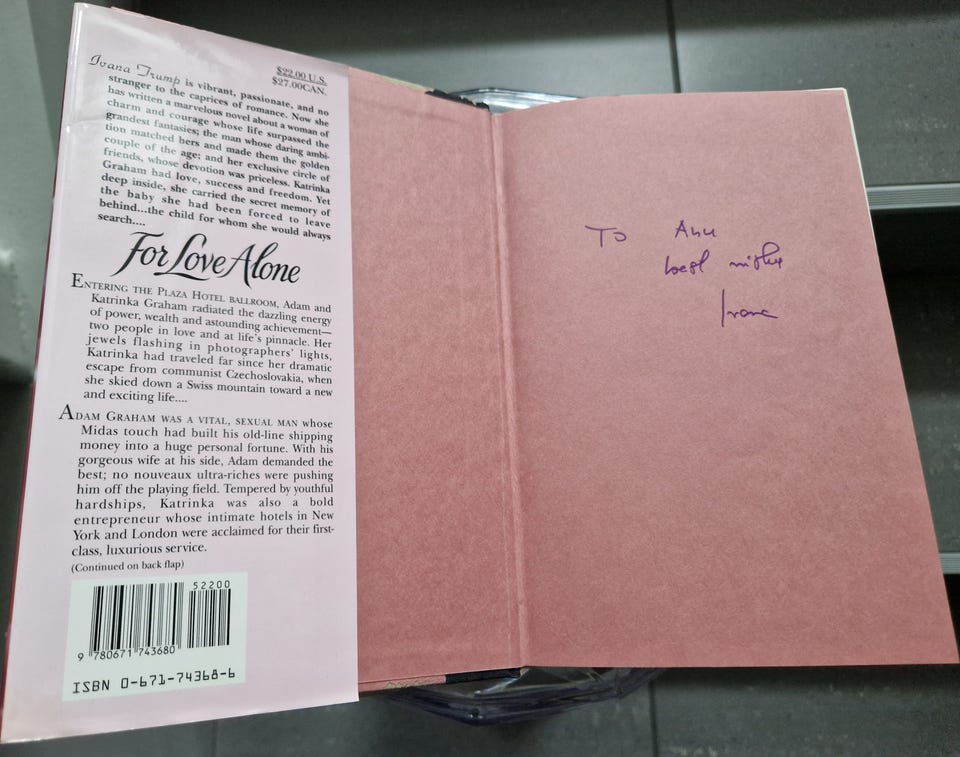 $22.00 U.S.
$27.00CAN.
Ivana Trump is vibrant, passionate, and no
stranger to the caprices of romance. Now she
has written a marvelous novel about a woman of
charm and courage whose life surpassed the
grandest fantasies; the man whose daring ambi-
tion matched hers and made them the golden
couple of the age; and her exclusive circle of
friends, whose devotion was priceless. Katrinka
Graham had love, success and freedom. Yet
deep inside, she carried the secret memory of
the baby she had been forced to leave
behind...the child for whom she would always
search....
For Love Alone
ENTERING THE PLAZA HOTEL BALLROOM, Adam and
Katrinka Graham radiated the dazzling energy
of power, wealth and astounding achievement—
two people in love and at life's pinnacle. Her
jewels flashing in photographers' lights,
Katrinka had traveled far since her dramatic
escape from communist Czechoslovakia, when
she skied down a Swiss mountain toward a new
and exciting life....
ADAM GRAHAM WAS A VITAL, SEXUAL MAN whose
Midas touch had built his old-line shipping
money into a huge personal fortune. With his
gorgeous wife at his side, Adam demanded the
best; no nouveaux ultra-riches were pushing
him off the playing field. Tempered by youthful
hardships, Katrinka was also a bold
entrepreneur whose intimate hotels in New
York and London were acclaimed for their first-
class, luxurious service.
(Continued on back flap)
52200
9 780671 743680
ISBN 0-671-74368-6
To Ann
best wishes
Ivana